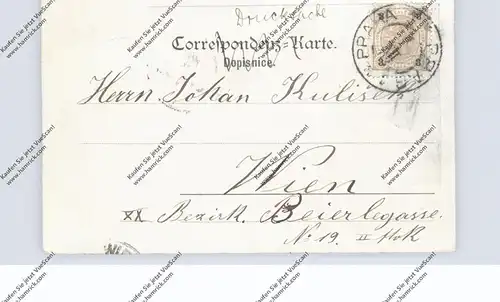 Drucksache
Correspondenz-Karte.
Dopisnice.
PRAHA
Herrn Johan Kulisek
Wien
XX Bezirk. Beierlegasse.
No 19. II Stok
WIEN
Kaufen Sie jetzt VueScan!
www.hamrick.com